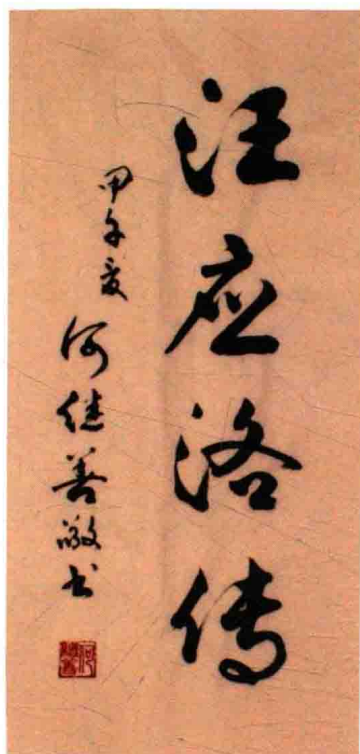 汪应洛传
甲午夏
何继善敬书